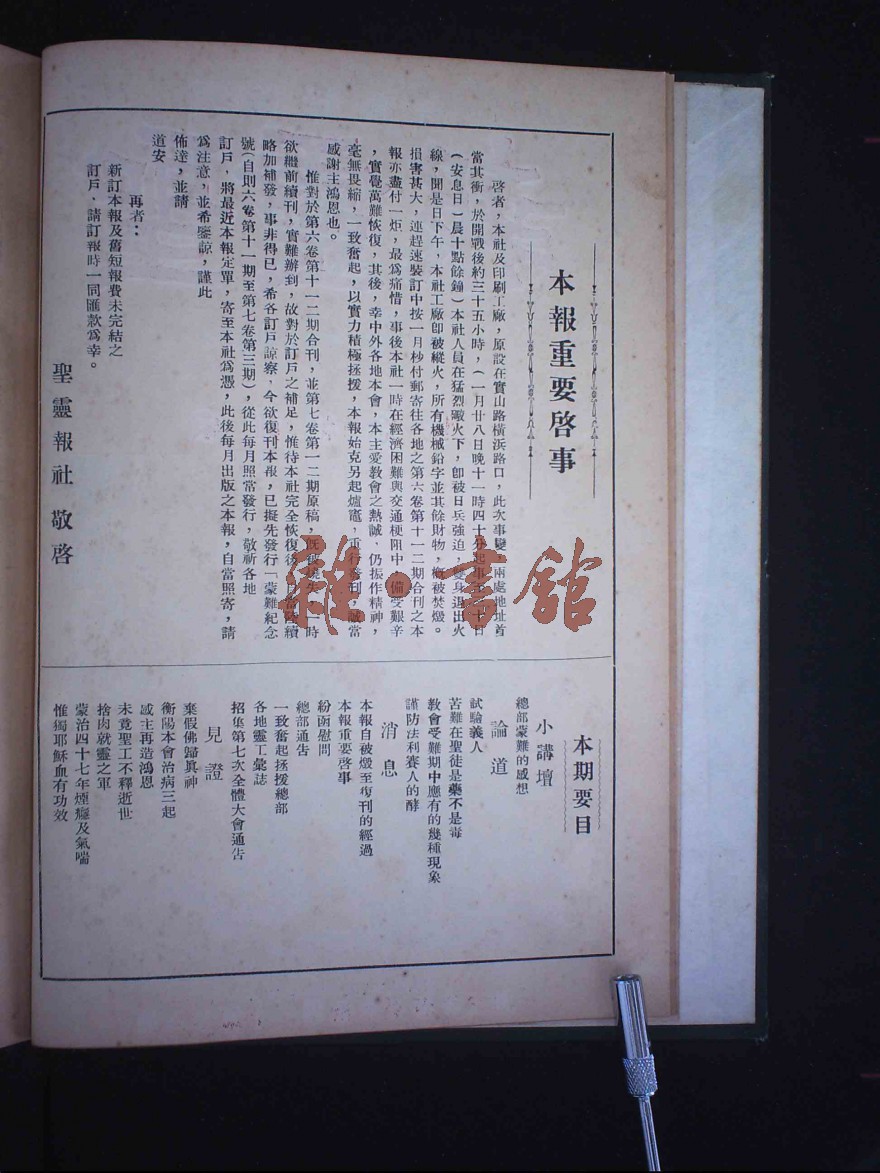 本報重要啓事
啓者，本社及印刷工廠，原設在寶山路橫浜路口，此次事變，兩處地址首
當其衝，於開戰後約三十五小時，(一月廿八日晚十一時四十分起事至三十日
(安息日)晨十點餘鐘)本社人員在猛烈礮火下，卽被日兵强迫，雙身退出火
線，聞是日下午，本社工廠卽被縱火，所有機械鉛字並其餘財物，概被焚燬。
損害甚大，連趕速裝訂中按一月杪付郵寄往各地之第六卷第十一二期合刊之本
報亦盡付一炬，最爲痛惜，事後本社一時在經濟困難與交通梗阻中，備受艱辛
，實覺萬難恢復，其後，幸中外各地本會，本主愛教會之熱誠，仍振作精神，
毫無畏縮，一致奮起，以實力積極拯援，本報始克另起爐竈，重行發刊，誠當
感謝主鴻恩也。
惟對於第六卷第十一二期合刊，並第七卷第一二期原稿，旣被燒失，一時
欲繼前續刊，實難辦到，故對於訂戶之補足，惟待本社完全恢復後，自當陸續
略加補發，事非得已，希各訂戶諒察，今欲復刊本報，已擬先發行「蒙難紀念
號(自則六卷第十一期至第七卷第三期)，從此每月照常發行，敬祈各地
訂戶，將最近本報定單，寄至本社爲憑，此後每月出版之本報，自當照寄，請
爲注意，並希鑒諒，謹此
佈達，並請
道安
再者：
新訂本報及舊短報費未完結之
訂戶，請訂報時一同匯款爲幸。
聖靈報社敬啓
本期要目
小講壇
總部蒙難的感想
論道
試驗義人
苦難在聖徒是藥不是毒
教會受難期中應有的幾種現象
謹防法利賽人的酵
消息
本報自被燬至復刊的經過
本報重要啓事
紛函慰問
總部通告
一致奮起拯援總部
各地靈工彙誌
招集第七次全體大會通告
見證
棄假佛歸眞神
衡陽本會治病三起
感主再造鴻恩
未竟聖工不釋逝世
捨肉就靈之軍
蒙治四十七年煙癮及氣喘
惟獨耶穌血有功效